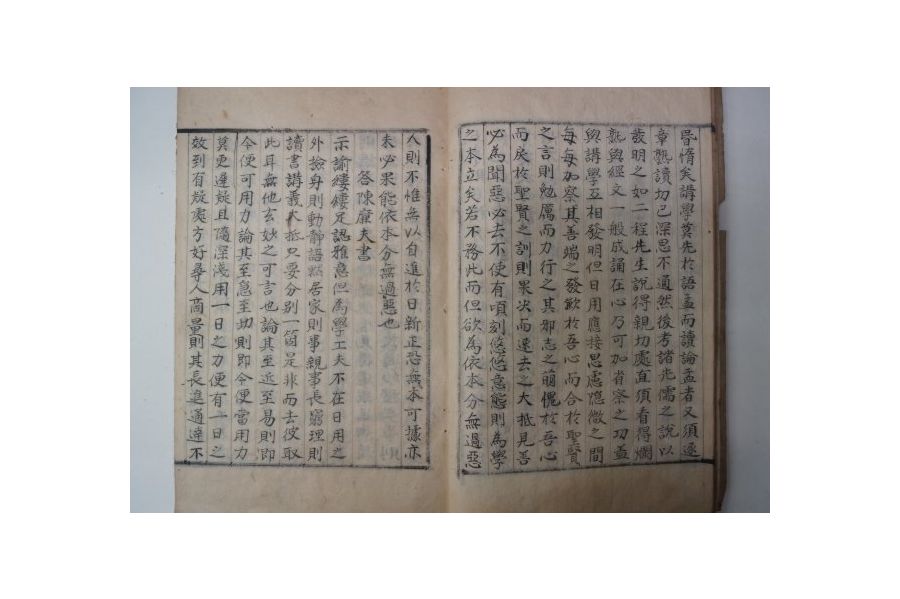 昬惰矣講學莫先於語孟而讀論孟者又須逐
章熟讀切己深思不通然後考諸先儒之說以
發明之如二程先生說得親切處直須看得爛
熟與經文一般成誦在心乃可加省察之功盖
與講學互相發明但日用應接思慮隱微之間
每每加察其善端之發歉於吾心而合於聖賢
之言則勉厲而力行之其邪志之萠愧於吾心
而戾於聖賢之訓則果决而速去之大抵見善
必為聞惡必去不使有頃刻悠悠意態則為學
之本立矣若不務此而但欲為依本分無過惡
人則不惟無以自進於日新正恐無本可據亦
未必果能依本分無過惡也
答陳廉夫書
示諭縷縷足認雅意但為學工夫不在日用之
外撿身則動靜語默居家則事親事長窮理則
讀書講義大抵只要分别一箇是非而去彼取
此耳無他玄妙之可言也論其至近至易則即
今便可用力論其至急至切則即今便當用力
莫更遲疑且隨深淺用一日之力便有一日之
效到有疑處方好尋人商量則其長進通達不